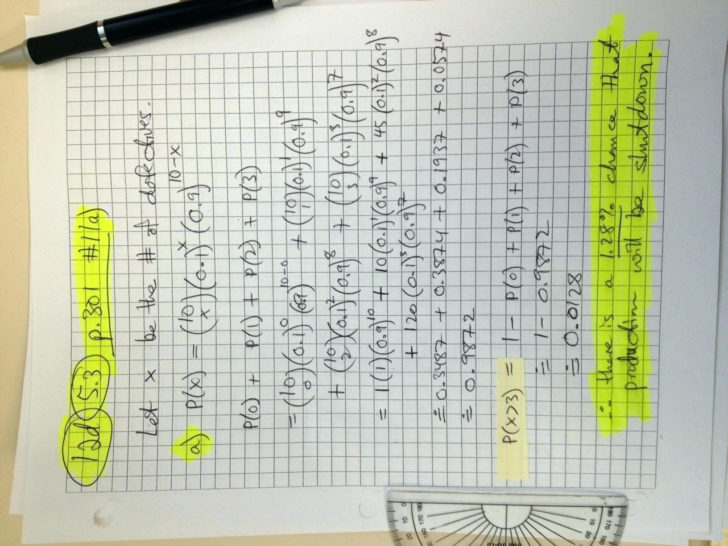 12d) 5.3 p.301 #11a)
Let x be the # of defectives.
a) P(x) = (10 x)(0.1)^x (0.9)^10-x
P(0) + P(1) + P(2) + P(3)
= (10 0)(0.1)^0 (0.9)^10-0 + (10 1)(0.1)^1 (0.9)^9
+ (10 2)(0.1)^2 (0.9)^8 + (10 3)(0.1)^3 (0.9)^7
= 1(1)(0.9)^10 + 10(0.1)^1 (0.9)^9 + 45(0.1)^2 (0.9)^8
+ 120(0.1)^3 (0.9)^7
≐ 0.3487 + 0.3874 + 0.1937 + 0.0574
≐ 0.9872
P(x>3) = 1 - P(0) + P(1) + P(2) + P(3)
≐ 1 - 0.9872
≐ 0.0128
∴ there is a 1.28% chance that
production will be shutdown.